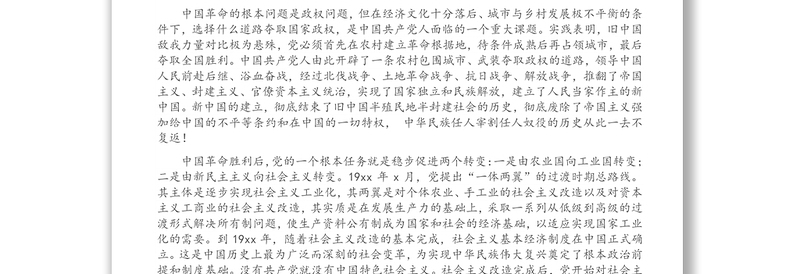 中国革命的根本问题是政权问题，但在经济文化十分落后、城市与乡村发展极不平衡的条
件下，选择什么道路夺取国家政权，是中国共产党人面临的一个重大课题。实践表明，旧中国
敌我力量对比极为悬殊，党必须首先在农村建立革命根据地，待条件成熟后再占领城市，最后
夺取全国胜利。中国共产党人由此开辟了一条农村包围城市、武装夺取政权的道路，领导中国
人民前赴后继、浴血奋战，经过北伐战争、土地革命战争、抗日战争、解放战争，推翻了帝国
主义、封建主义、官僚资本主义统治，实现了国家独立和民族解放，建立了人民当家作主的新
中国。新中国的建立，彻底结束了旧中国半殖民地半封建社会的历史，彻底废除了帝国主义强
加给中国的不平等条约和在中国的一切特权， 中华民族任人宰割任人奴役的历史从此一去不
复返！
中国革命胜利后,党的一个根本任务就是稳步促进两个转变:一是由农业国向工业国转变;
二是由新民主主义向社会主义转变。19xx 年 x 月，党提出“一体两翼”的过渡时期总路线。
其主体是逐步实现社会主义工业化，其两翼是对个体农业、手工业的社会主义改造以及对资本
主义工商业的社会主义改造，其实质是在发展生产力的基础上，采取一系列从低级到高级的过
渡形式解决所有制问题，使生产资料公有制成为国家和社会的经济基础，以适应实现国家工业
化的需要。到 19xx 年，随着社会主义改造的基本完成，社会主义基本经济制度在中国正式确
立。这是中国历史上最为广泛而深刻的社会变革，为实现中华民族伟大复兴奠定了根本政治前
提和制度基础。没有共产党就没有中国特色社会主义。社会主义改造完成后，党开始对社会主